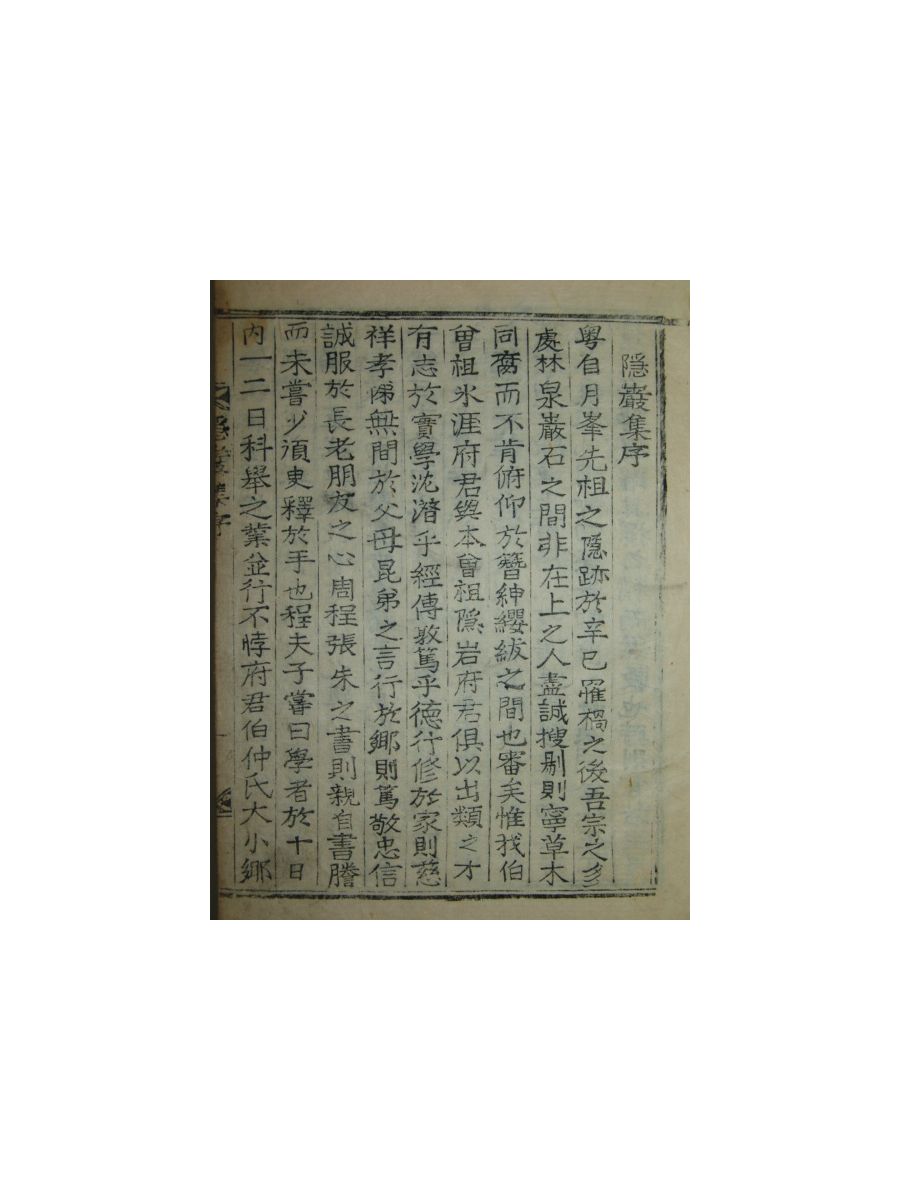 隱巖集序
粤自月峯先祖之隱跡於辛巳罹禍之後吾宗之多
處林泉巖石之間非在上之人盡誠搜剔則寧草木
同腐而不肯俯仰於簪紳纓紱之間也審矣惟我伯
曾祖氷涯府君與本曾祖隱岩府君俱以出類之才
有志於實學沈潛乎經傳敦篤乎德行修於家則慈
祥孝悌無間於父母昆弟之言行於鄉則篤敬忠信
誠服於長老朋友之心周程張朱之書則親自書謄
而未嘗少須臾釋於手也程夫子嘗曰學者於十日
內一二日科舉之業並行不悖府君伯仲氏大小鄉
隱巖集序
一